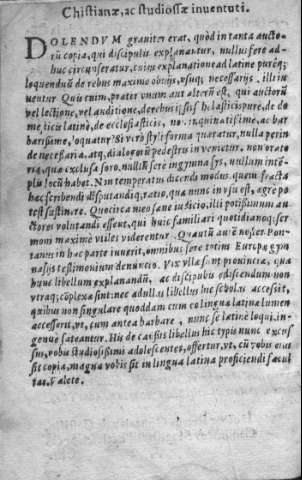 Chistianæ, ac studiosæ inuentuti.
DOLENDVM grauiter erat, quòd in tanta aucto-
rū copia, qui discipulis explanantur, nullus fere ad-
huc circunferatur, cuius explanatione ad latine purèq;
loquendū de rebus maxime obuijs, usuq; necessarijs, illi iu-
uentur Quis enim, præter vnum aut alterū est, qui auctorū
vel lectione, vel auditione, de rebus
me,
barissimè, loquatur? Si vero styli forma quæratur, nulla perin
de necessaria, atq; dialogorū pedestris in venietur, non orato
ria, quæ exclusa foro, nullū fere in gymna sijs, nullum in tē-
plis locū habet. Non temperatus dicendi modus, quem
hac scribendi disputandiq; ratio, qua nunc in vsu est, ægrè po
test sustinere. Quocirca meo sane iudicio, illi potissimum au-
ctores volutandi essent, qui huic familiari quotidianoq; ser-
moni maximè vtiles viderentur. Quātū autē noster Pon-
tanus in hac parte iuuerit, omnibus fere totius Europæ gym
nasijs testimonium denuncio. Vix vlla sunt prouincia, quæ
hunc libellum explanandū, ac discipulis ediscendum non
vtraq; cōplexa sint: nec ad vllus libellus his scholis accessit,
quibus non singulare quoddam cum eo lingua latina lumen
accesserit, vt, cum antea barbare, nunc se latinè loqui, in-
genuè fateantur. His de causis libellus hic typis nunc excus
sus, vobis studiosissimi adolescentes, offertur, vt, cū vobis eius
sit copia, magna vobis sit in lingua latina proficiendi facul
tas. Valete.